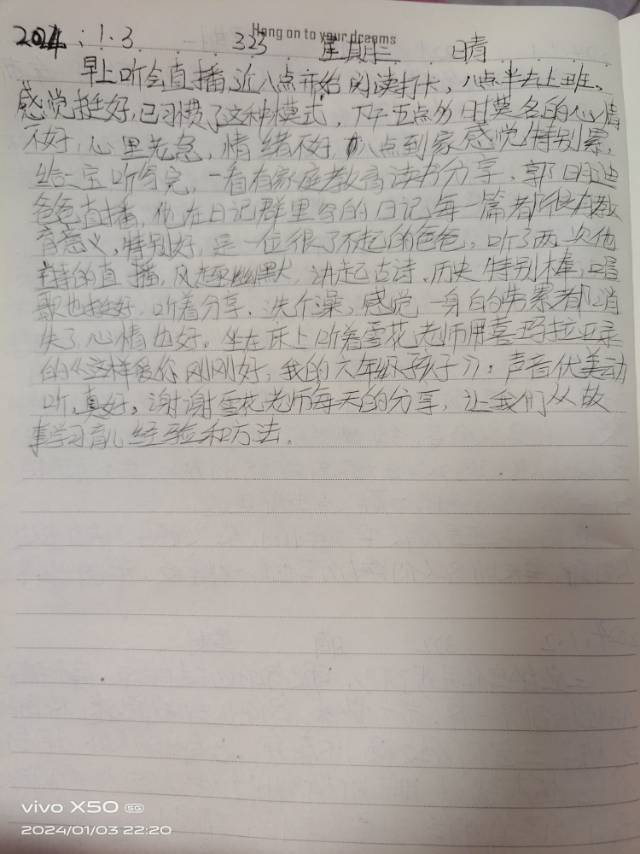 Hang on to your dreams
2024.1.3 323 星期三 晴
早上听会直播近八点开始阅读打卡，八点半去上班、
感觉挺好，已习惯了这种模式，下午五点多时莫名的心情
不好，心里着急，情绪不好，八点到家感觉特别累，
给二宝听写完，一看有家庭教育读书分享，郭明迪
爸爸直播，他在日记群里写的日记每一篇都很有教
育意义，特别好，是一位很了不起的爸爸，听了两次他
主持的直播，风趣幽默，讲起古诗、历史特别棒，唱
歌也挺好，听着分享，洗个澡，感觉一身的劳累都消
失了，心情也好。坐在床上听着雪花老师用喜玛拉亚录
的《这样爱你刚刚好，我的六年级孩子》：声音优美动
听，真好，谢谢雪花老师每天的分享，让我们从故
事学习育儿经验和方法。
vivo X50 5G
2024/01/03 22:20